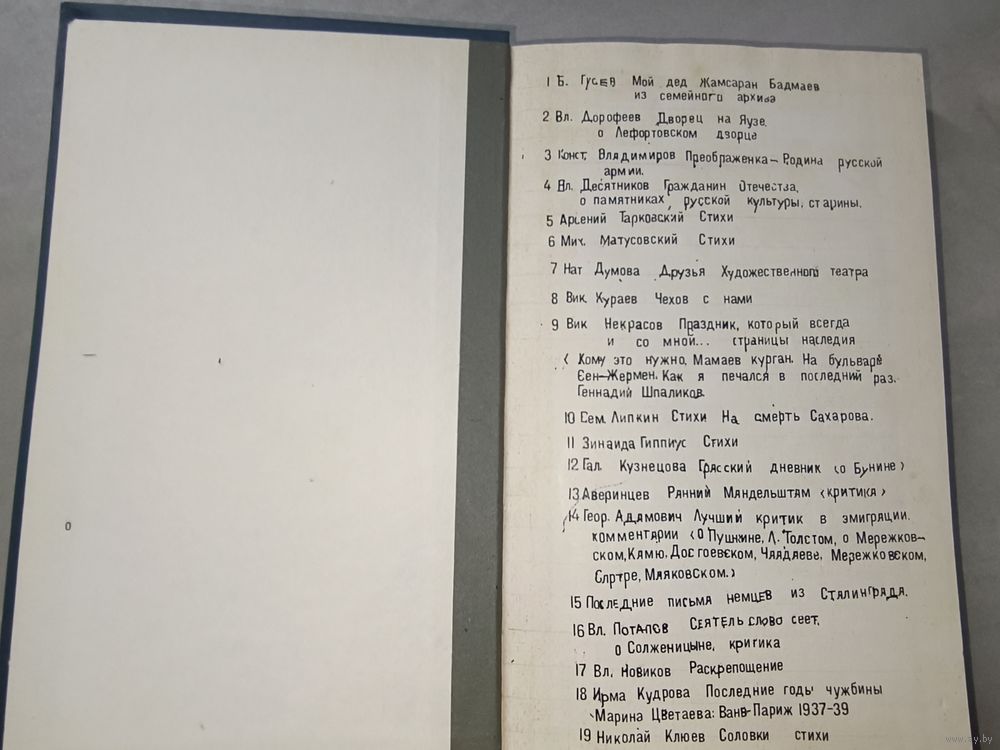 1 Б. Гусев Мой дед Жамсаран Бадмаев
из семейного архива
2 Вл. Дорофеев Дворец на Яузе.
о Лефортовском дворце
3 Конст. Владимиров Преображенка – Родина русской
армии.
4 Вл. Десятников Гражданин Отечества,
о памятниках, русской культуры, старины.
5 Арсений Тарковский Стихи
6 Мих. Матусовский Стихи
7 Нат Думова Друзья Художественного театра
8 Вик. Кураев Чехов с нами
9 Вик Некрасов Праздник, который всегда
и со мной... страницы наследия
< Кому это нужно. Мамаев курган. На бульваре
Сен-Жермен. Как я печался в последний раз.
Геннадий Шпаликов.
10 Сем. Липкин Стихи На смерть Сахарова.
11 Зинаида Гиппиус Стихи
12 Гал. Кузнецова Грасский дневник <о Бунине>
13 Аверинцев Ранний Мандельштам <критика>
14 Геор. Адамович Лучший критик в эмиграции.
комментарии <О Пушкине, Л. Толстом, о Мережков-
ском, Камю, Достоевском, Чаадаеве, Мережковском,
Сартре, Маяковском.>
15 Последние письма немцев из Сталинграда.
16 Вл. Потапов Сеятель слово сеет.
о Солженицыне, критика
17 Вл. Новиков Раскрепощение
18 Ирма Кудрова Последние годы чужбины
Марина Цветаева: Ванв-Париж 1937-39
19 Николай Клюев Соловки стихи
www.ay.by